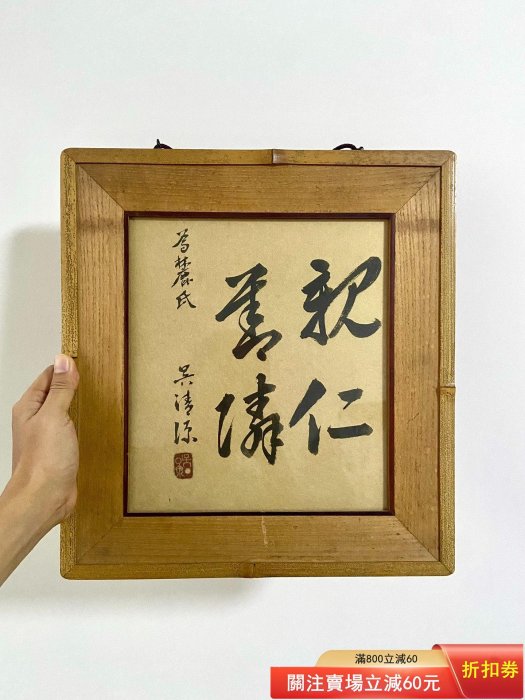 親仁
善隣
為林麓氏
吳清源
滿800立減60
關注賣場立減60元
折扣券